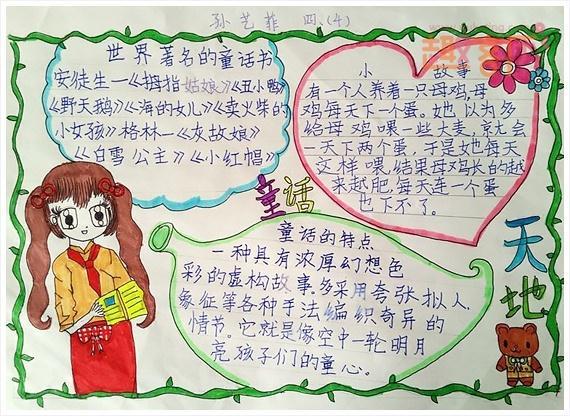 孙艺菲 四.(4)
世界著名的童话书
安徒生一《拇指姑娘》《丑小鸭》
《野天鹅》《海的女儿》《卖火柴的
小女孩》格林一《灰故娘》
《白雪公主》《小红帽》
小 故事
有一个人养着一只母鸡,母
鸡每天下一个蛋。她以为多
给母鸡喂一些大麦,就会
一天下两个蛋,于是她每天
这样喂,结果母鸡长的越
来越肥,每天连一个蛋
也下不了。
童话
童话的特点
一种具有浓厚幻想色
彩的虚构故事,多采用夸张、拟人、
象征等各种手法编织奇异的
情节。它就是像空中一轮明月
亮孩子们的童心。
天地